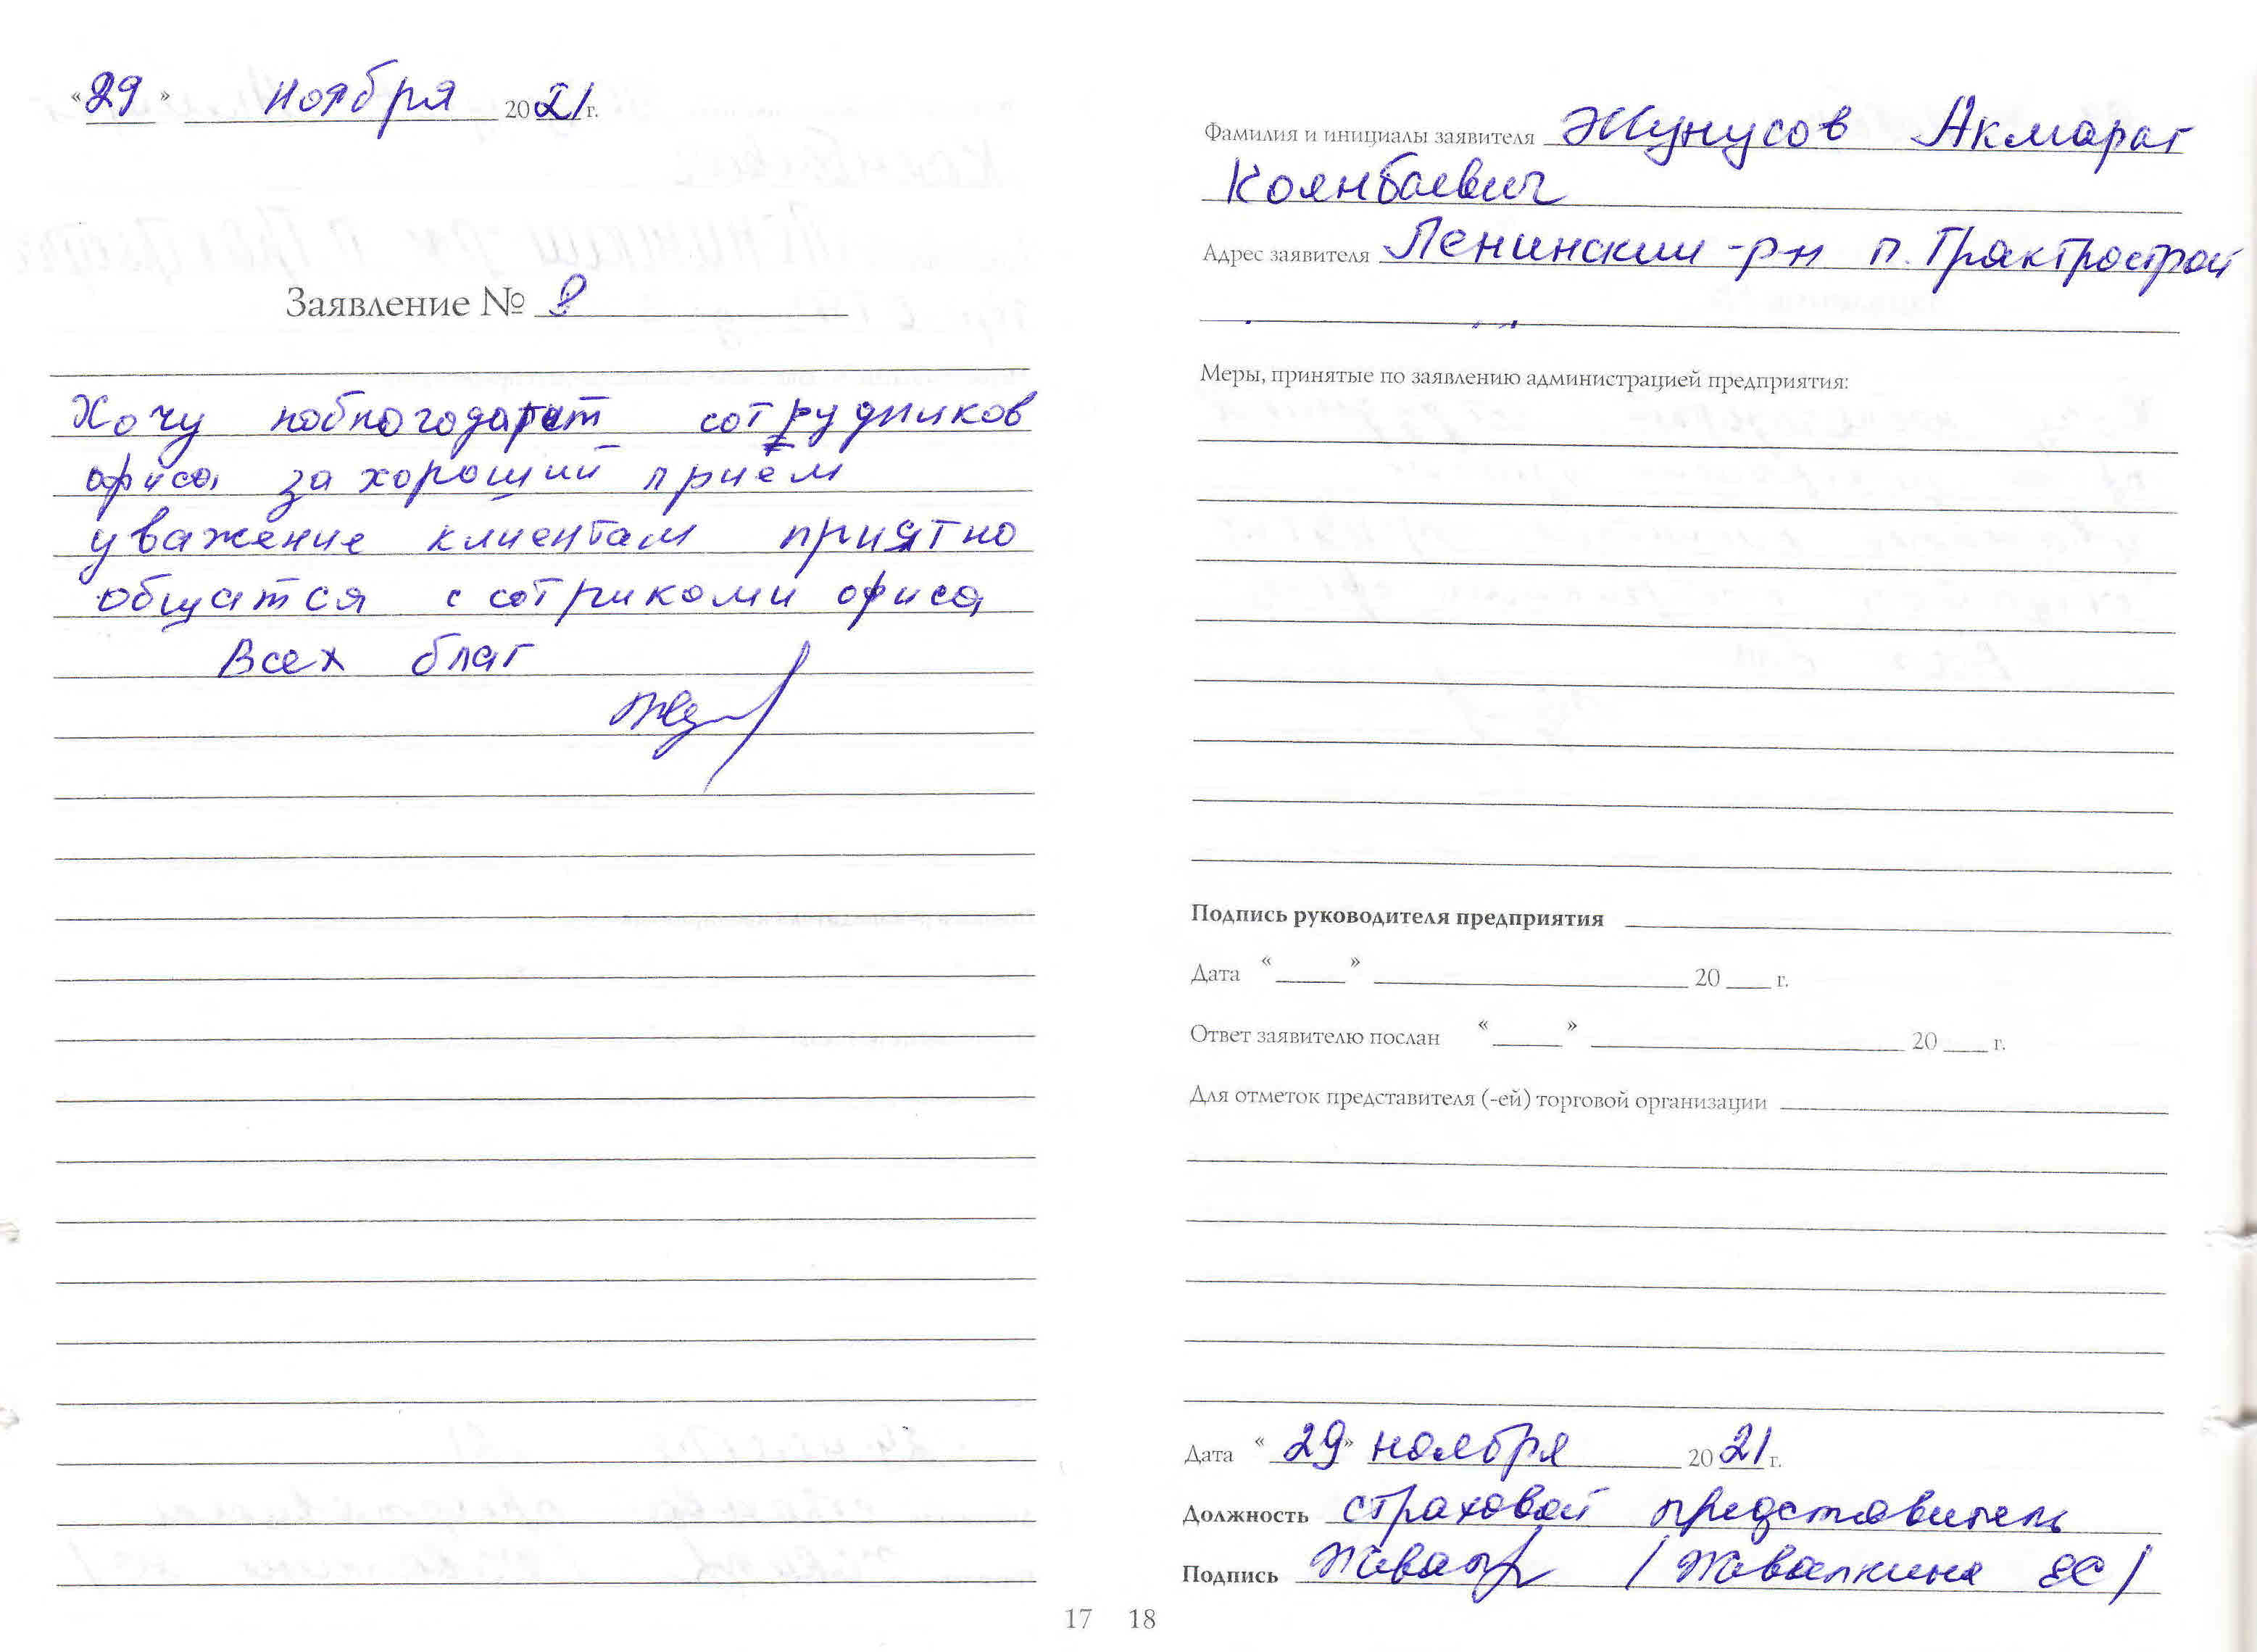 «29» ноября 2021 г.
Заявление № 8
Хочу побла годарит сотрудников
офиса за хороший приём
уважение клиентам приятно
общатся с сотриками офиса
Всех благ
Фамилия и инициалы заявителя Жунусов Акмарат
Коянбаевич
Адрес заявителя Ленинский - р-н п. Трактрострой
Меры, принятые по заявлению администрацией предприятия:
Подпись руководителя предприятия
Дата « » 20 г.
Ответ заявителю послан « » 20 г.
Для отметок представителя (-ей) торговой организации
Дата «29» ноября 2021 г.
Должность страховой представитель
Подпись / Живалкина ЕС /
17 18